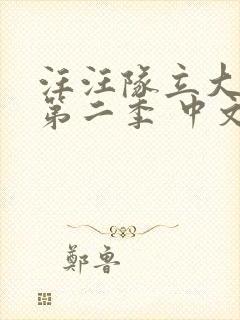 汪汪隊立大
第二季 中文
鄭魯